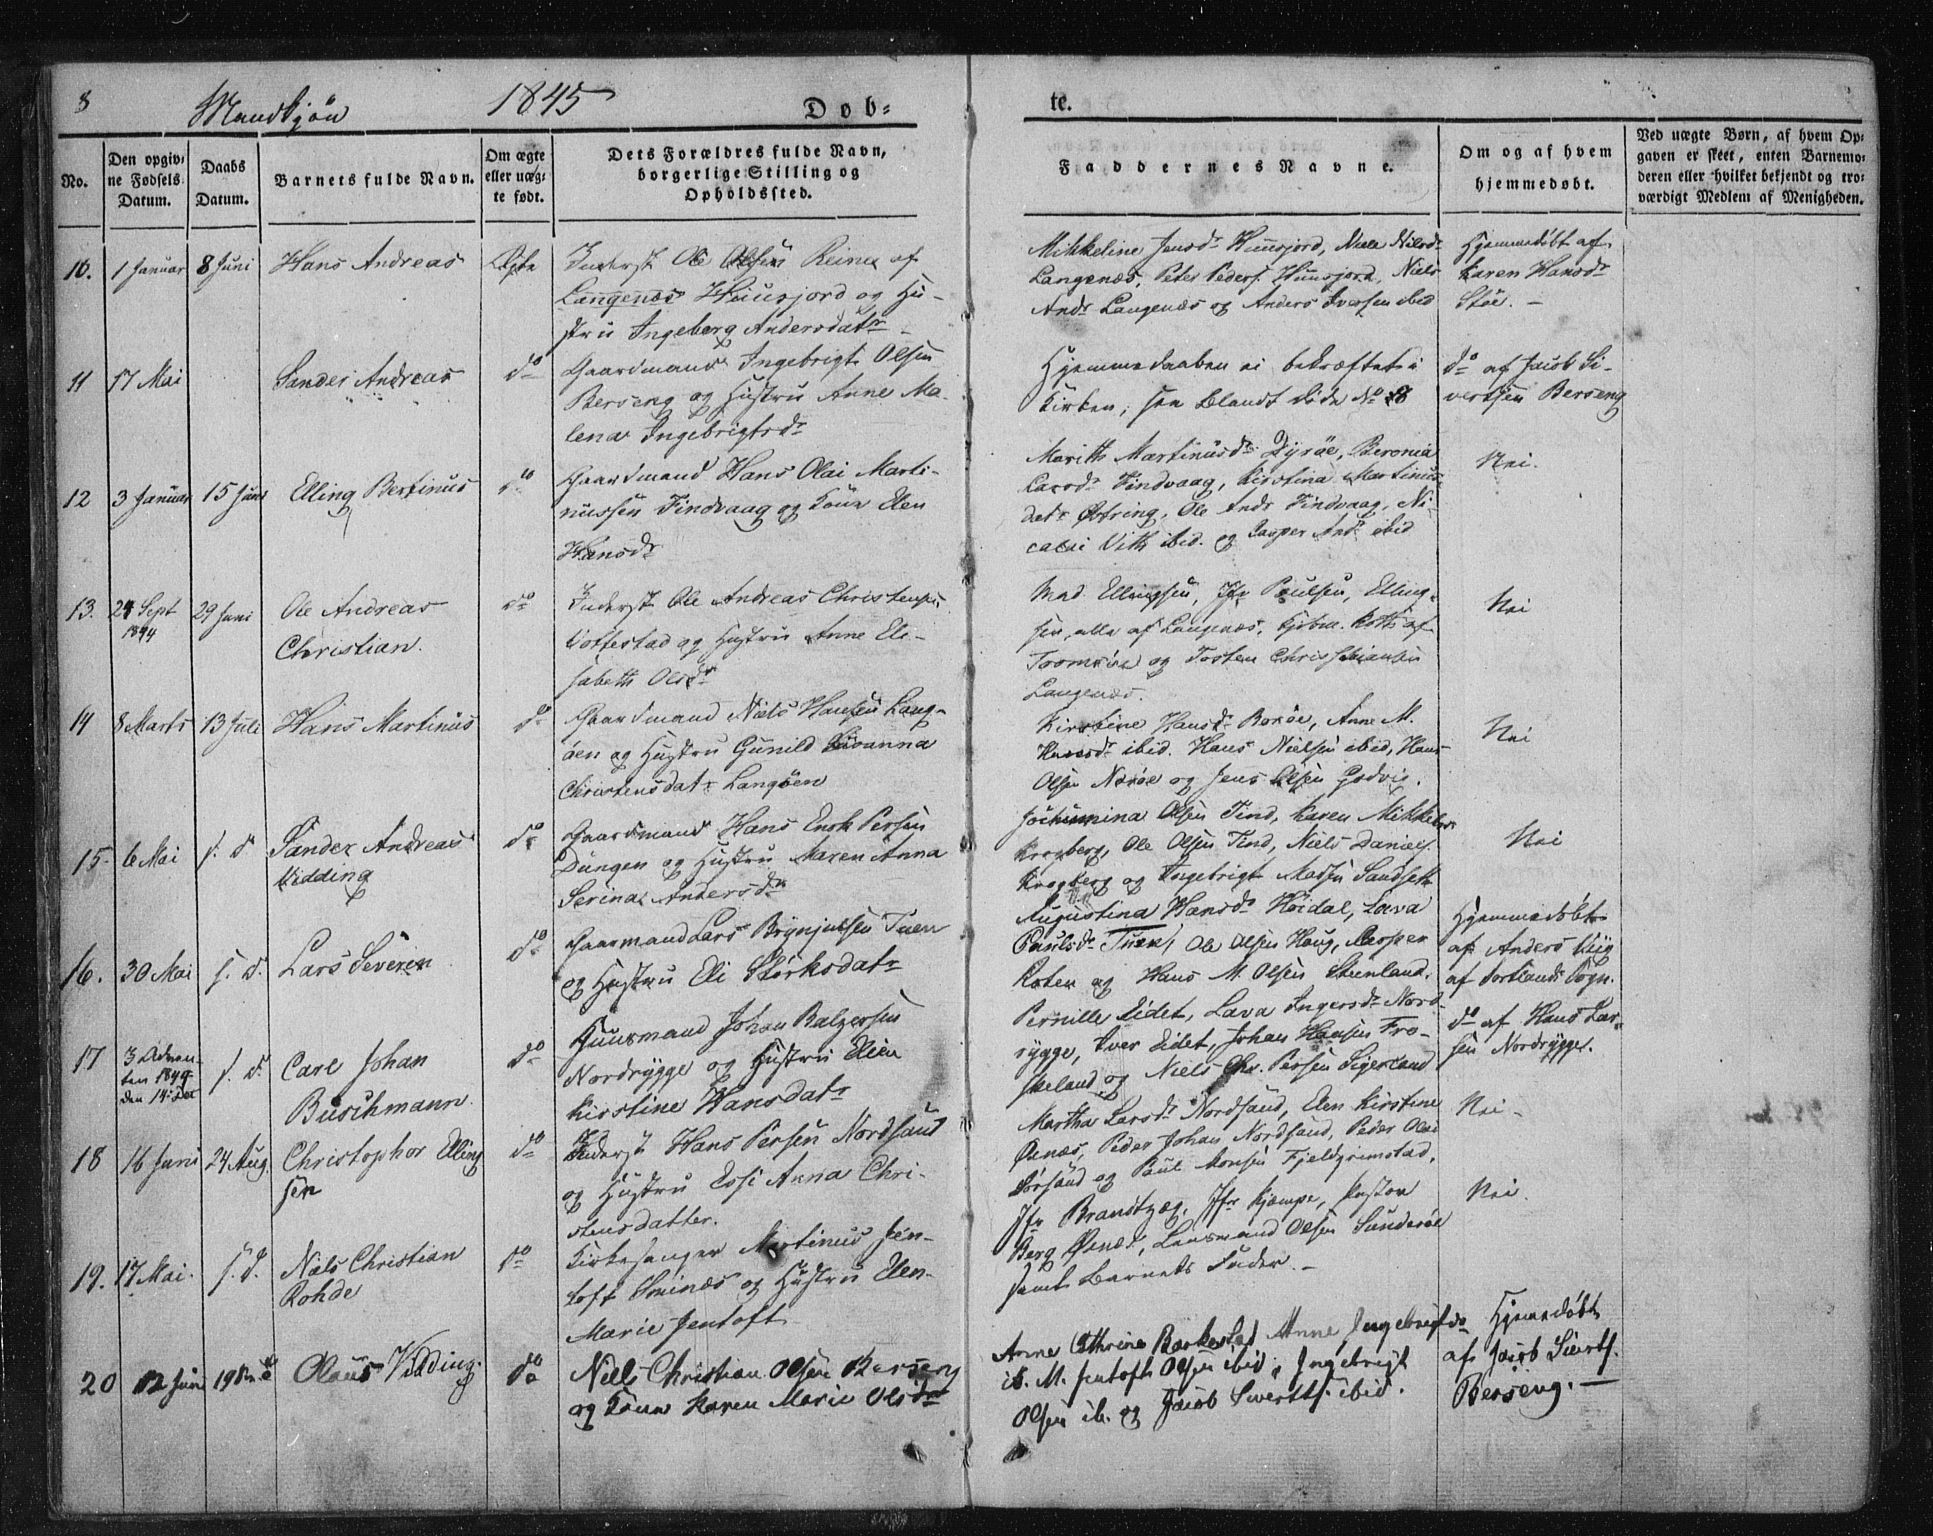 8 Mandkjøn 1845 Døb-
te.
No.
Den opgiv-
ne Fødsels
Datum.
Daabs
Datum.
Barnets fulde Navn.
Om ægte
eller uæg-
te født.
Dets Forældres fulde Navn,
borgerlige Stilling og
Opholdssted.
Faddernes Navne.
Om og af hvem
hjemmedøbt.
Ved uægte Børn, af hvem Op-
gaven er skeet, enten Barnemo-
deren eller hvilket bekjendt og tro-
værdigt Medlem af Menigheden.
10. 1 Januar 8 Juni Hans Andreas Ægte
Inderst Ole Olsen Reina af
Langenæs Huusjord og Hu-
stru Ingeberg Andersdatr
Mikkeline Jensdr Huusjord, Nils Nilsdr
Langenæs, Peter Peders. Huusjord, Niels
Andr Langenæs og Anders Iversen ibid
Hjemmedøbt af
Karen Hansdr
Støe. -
11 17 Mai Sander Andreas do
Gaardmand Ingebrigt Olsen
Berseng og Hustru Anne Ma-
lena Ingebrigtsdr
Hjemmedaaben ei bekræftet i
Kirken; see blandt døde No 8
do af Jacob Si-
vertsen Berseng
12 3 Januar 15 Juni Elling Bertinus do
Gaardmand Hans Olai Marti-
nussen Findvaag og Kone Elen
Hansdr
Marith Martinusdr Dyrøe, Beronia
Larsdr Findvaag, Kirstina Martinus-
datr Østring, Ole Andr Findvaag, Ni-
calai Vith ibid. og Casper Andr ibid
Nei.
13. 24 Sept
1844
29 Juni
Ole Andreas
Christian.
do
Inderst Ole Andreas Christensen
Kottestad og Hustru Anne Eli-
sabeth Olsdr
Mad Ellingsen, Jfr Poulsen, Elling-
sen, alle af Langenæs, Kjøbm. Koth af
Tromsøe og Tosten Christiansen
Langenæs.
Nei
14 8 Marts 13 Juli Hans Martinus do
Gaardmand Niels Hansen Lang-
øen og Hustru Gunild Susanna
Christensdatr Langøen
Kirstine Hansdr Boröe, Anne M.
Hansdr ibid. Hans Nielsen ibid, Hans
Olsen Næröe og Jens Olsen Godvig.
Nei
15. 6 Mai s. D. Sander Andreas
Vidding
do
Gaardmand Hans Enok Persen
Dungen og Hustru Maren Anna
Serina Andersdr
Jochumina Olsen Tind, Karen Mikkelsdr
Krogberg, Ole Olsen Tind, Niels Daniels.
Krogberg og Ingebrigt Madsen Sandseth
Nei
16. 30 Mai s. D. Lars Severin do
Gaarmand Lars Brynjulsen Tuen
og Hustru Eli Størksdatr
Augustina Hansdr Høidal, Lava
Paulsdr Tuen, Ole Olsen Haug, Casper
Roten og Hans M. Olsen Steenland.
Hjemmedøbt
af Anders Viig
af Bortlands Sogn.
17 3 Adven-
ten 1844
den 14 Dec
s. D.
Carl Johan
Buschmann.
do
Huusmand Johan Balzersen
Nordrygge og Hustru Elen
Kirstine Hansdatr
Pernille Eidet, Lava Ingersdr Nord-
rygge, Iver Eidet, Johan Hansen Fro-
skeland og Niels Chr. Persen Sigerland
do af Hans Lar-
sen Nordrygge.
18 16 Juni 24 Aug. Christopher Elling
sen
do
Inderst Hans Persen Nordsand
og Hustru Essi Anna Chri-
stensdatter.
Martha Larsdr Nordsand, Elen Kirstine
Øenæs, Peder Johan Nordsand, Peder Olai
Sørsand og Poul Monsen Fjeldgrimstad,
Nei -
19. 17 Mai. s. D. Niels Christian
Rohde
do
Kirkesanger Martinus Jen-
toft Steinæs og Hustru Elen
Marie Jentoft
Jfr Brandtzæg, Jfr Kjempe, Pastor
Berg Øenæs, Lensmand Olsen Sunderöe
samt Barnets Fader. -
Nei.
20 12 Juni Olaus Vidding. do
Niels Christian Olsen Berseng
og Kone Karen Marie Olsdr
Anne Cathrine Barkestad, Anne Ingebrigtsdr
ib. M. Jentoft Olsen ibid, Ingebrigt
Olsen ib. og Jacob Sivertss. ibid.
Hjemedøbt
af Jacob Siverts.
Berseng. -